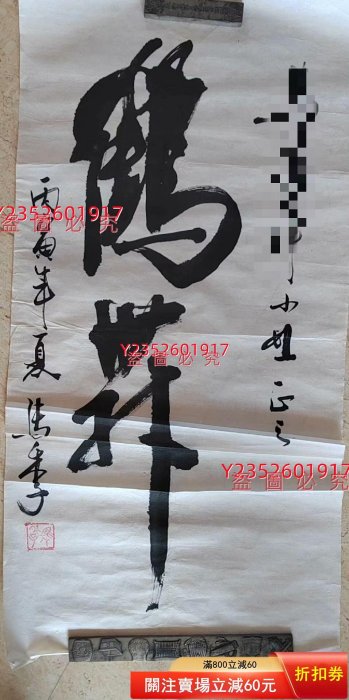 小姐正之
鶴舞
丙寅年夏 馬季
Y2352601917
盗圖必究
Y2352601917
盗圖必究
Y2352601917
盗圖必究
滿800立減60
關注賣場立減60元
折扣券